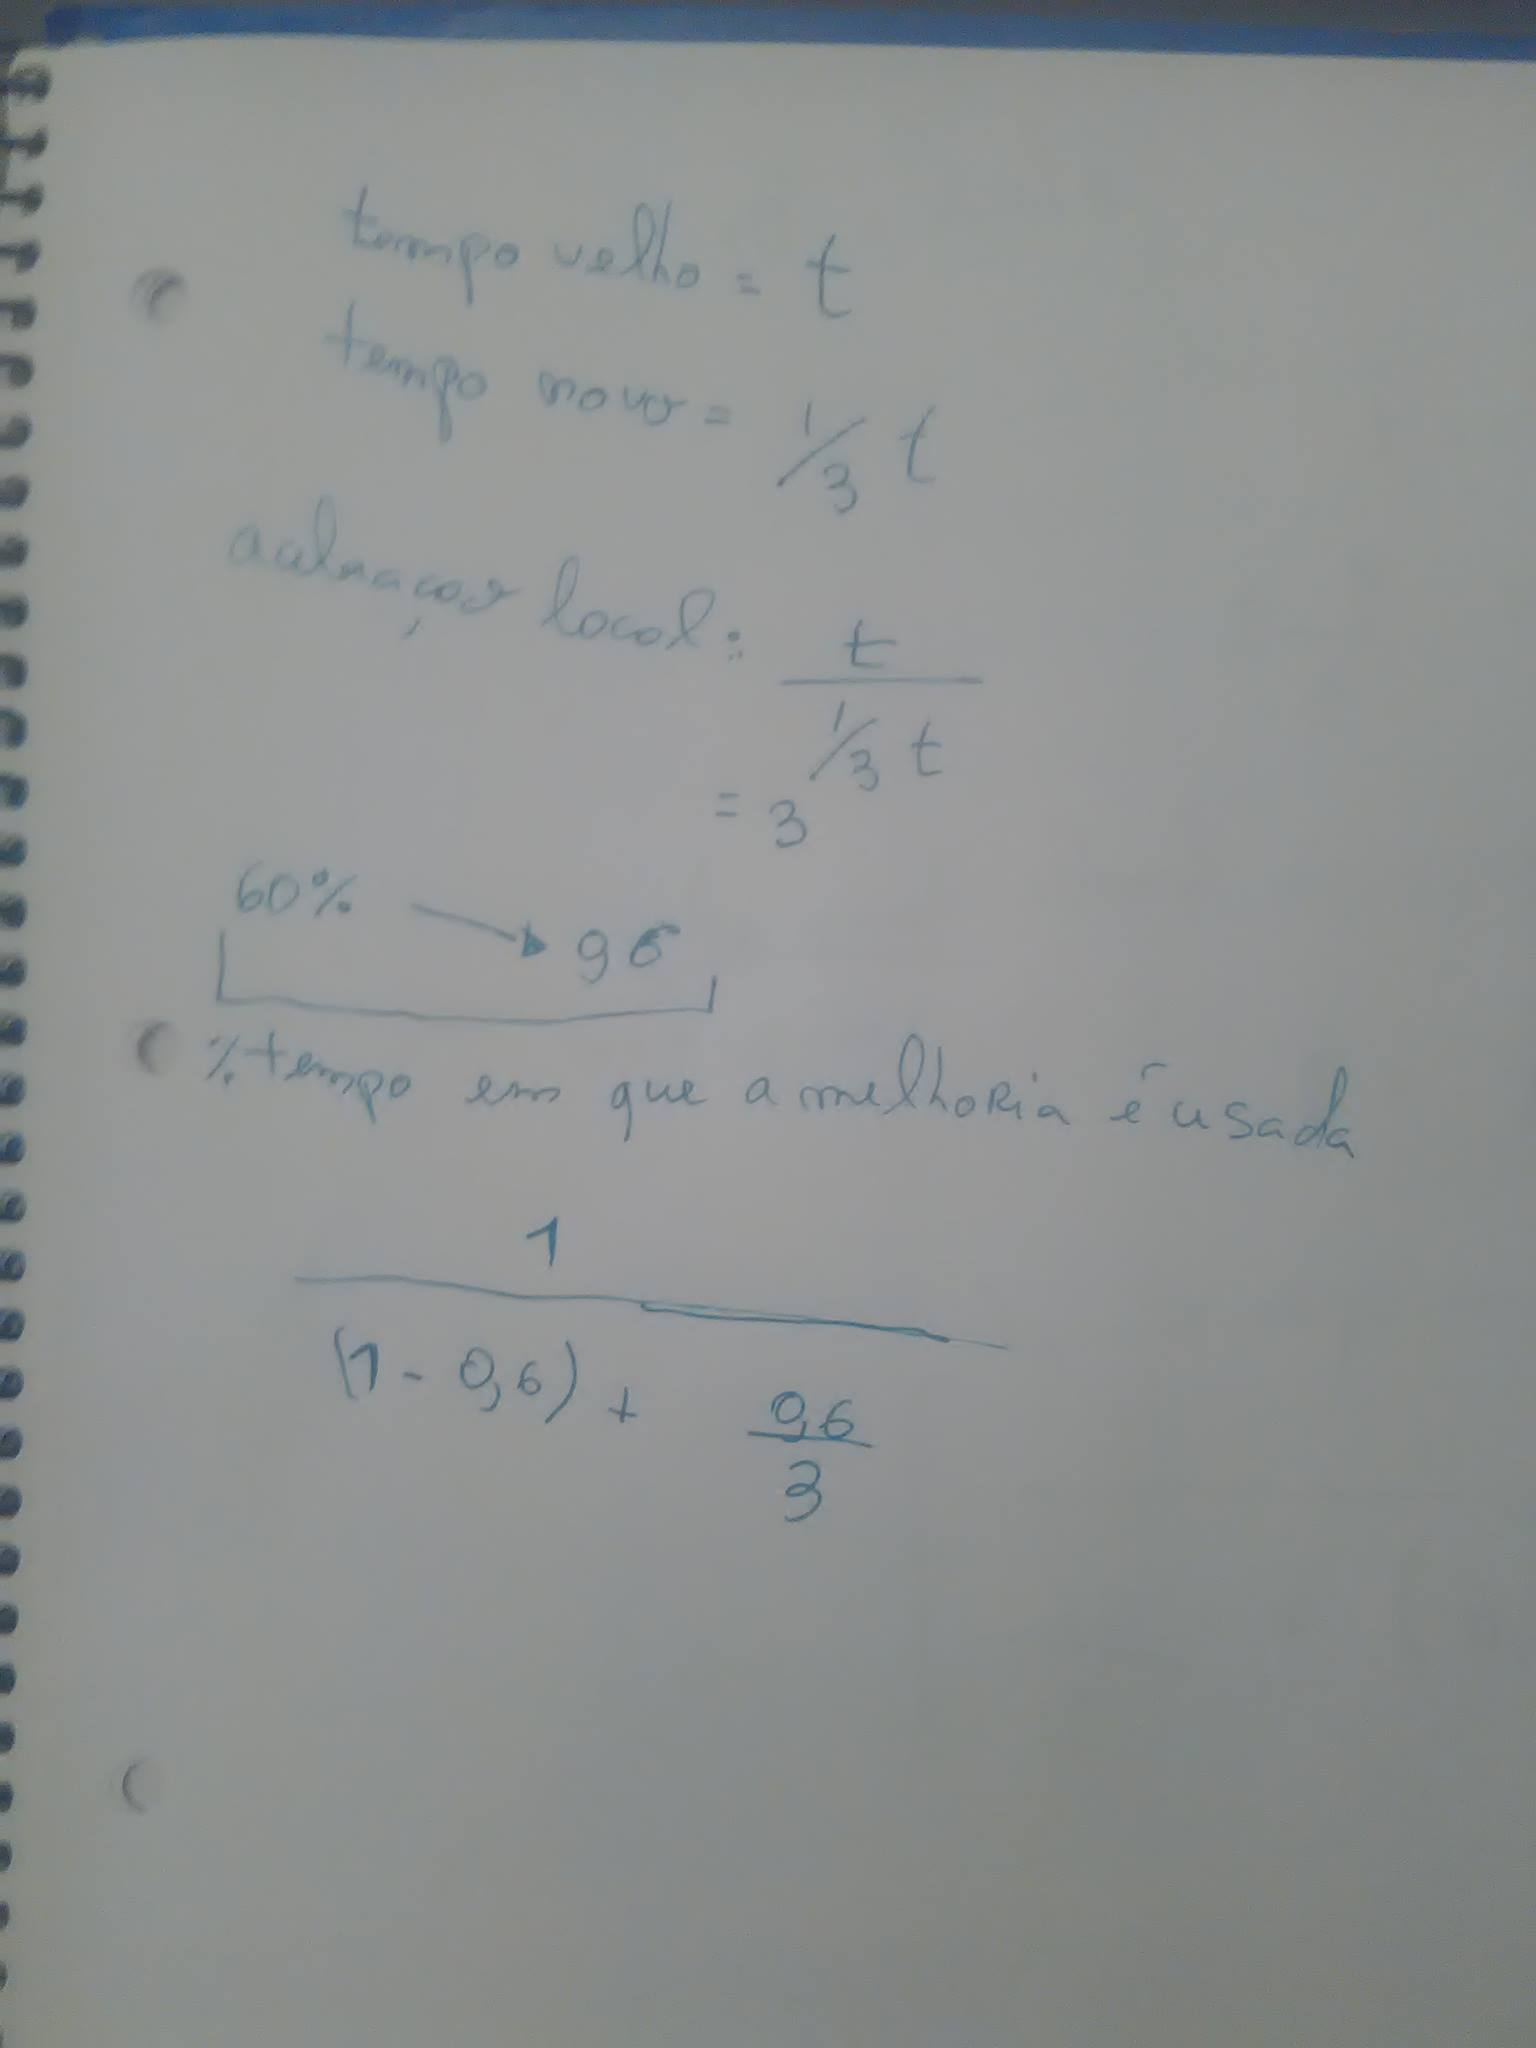 tempo velho = t
tempo novo = 1/3 t
aceleração local: t
1/3 t
= 3
60% → 96
% tempo em que a melhoria é usada
1
(1 - 0,6) + 0,6
3